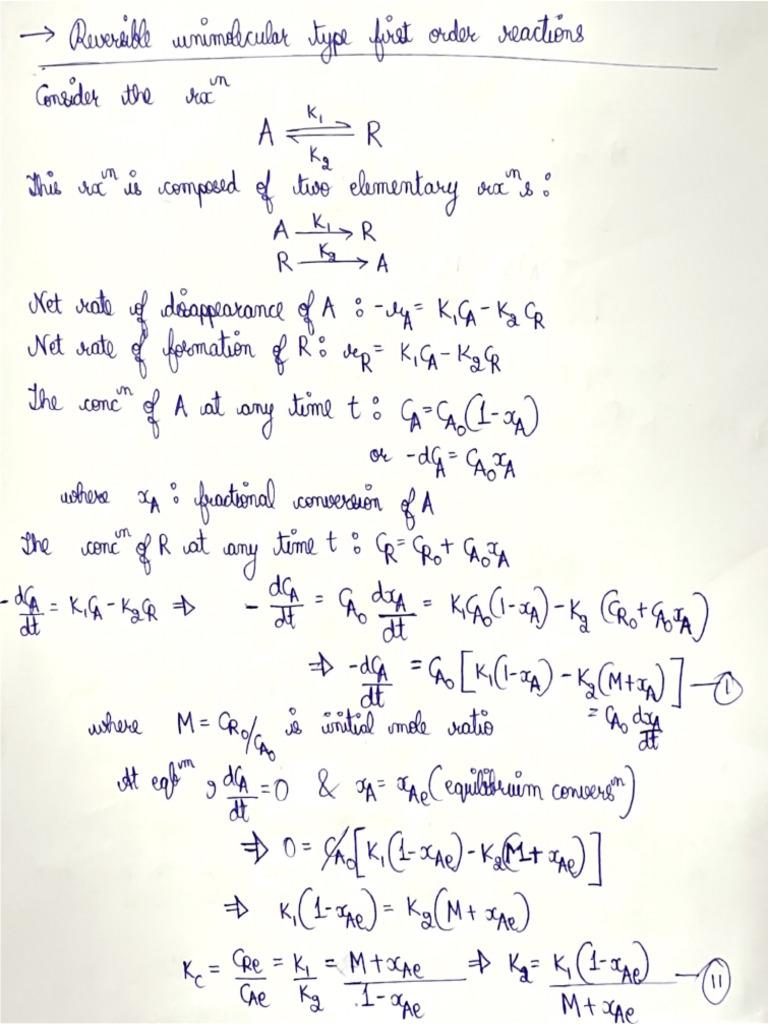 → Reversible unimolecular type first order reactions
Consider the rxⁿ
A ⇌ R (K₁ above, K₂ below)
This rxⁿ is composed of two elementary rxⁿs :
A —K₁→ R
R —K₂→ A
Net rate of disappearance of A : -r_A = K₁C_A - K₂C_R
Net rate of formation of R : r_R = K₁C_A - K₂C_R
The concⁿ of A at any time t : C_A = C_A₀(1-x_A)
or -dC_A = C_A₀x_A
where x_A : fractional conversion of A
The concⁿ of R at any time t : C_R = C_R₀ + C_A₀x_A
-dC_A/dt = K₁C_A - K₂C_R ⇒ -dC_A/dt = C_A₀ dx_A/dt = K₁C_A₀(1-x_A) - K₂(C_R₀ + C_A₀x_A)
⇒ -dC_A/dt = C_A₀[K₁(1-x_A) - K₂(M+x_A)] — I
= C_A₀ dx_A/dt
where M = C_R₀/C_A₀ is initial mole ratio
At eqbᵐ, dC_A/dt = 0 & x_A = x_Ae (equilibrium conversⁿ)
⇒ 0 = C_A₀[K₁(1-x_Ae) - K₂(M+x_Ae)]
⇒ K₁(1-x_Ae) = K₂(M+x_Ae)
K_c = C_Re/C_Ae = K₁/K₂ = M+x_Ae/1-x_Ae ⇒ K₂ = K₁(1-x_Ae)/M+x_Ae — II